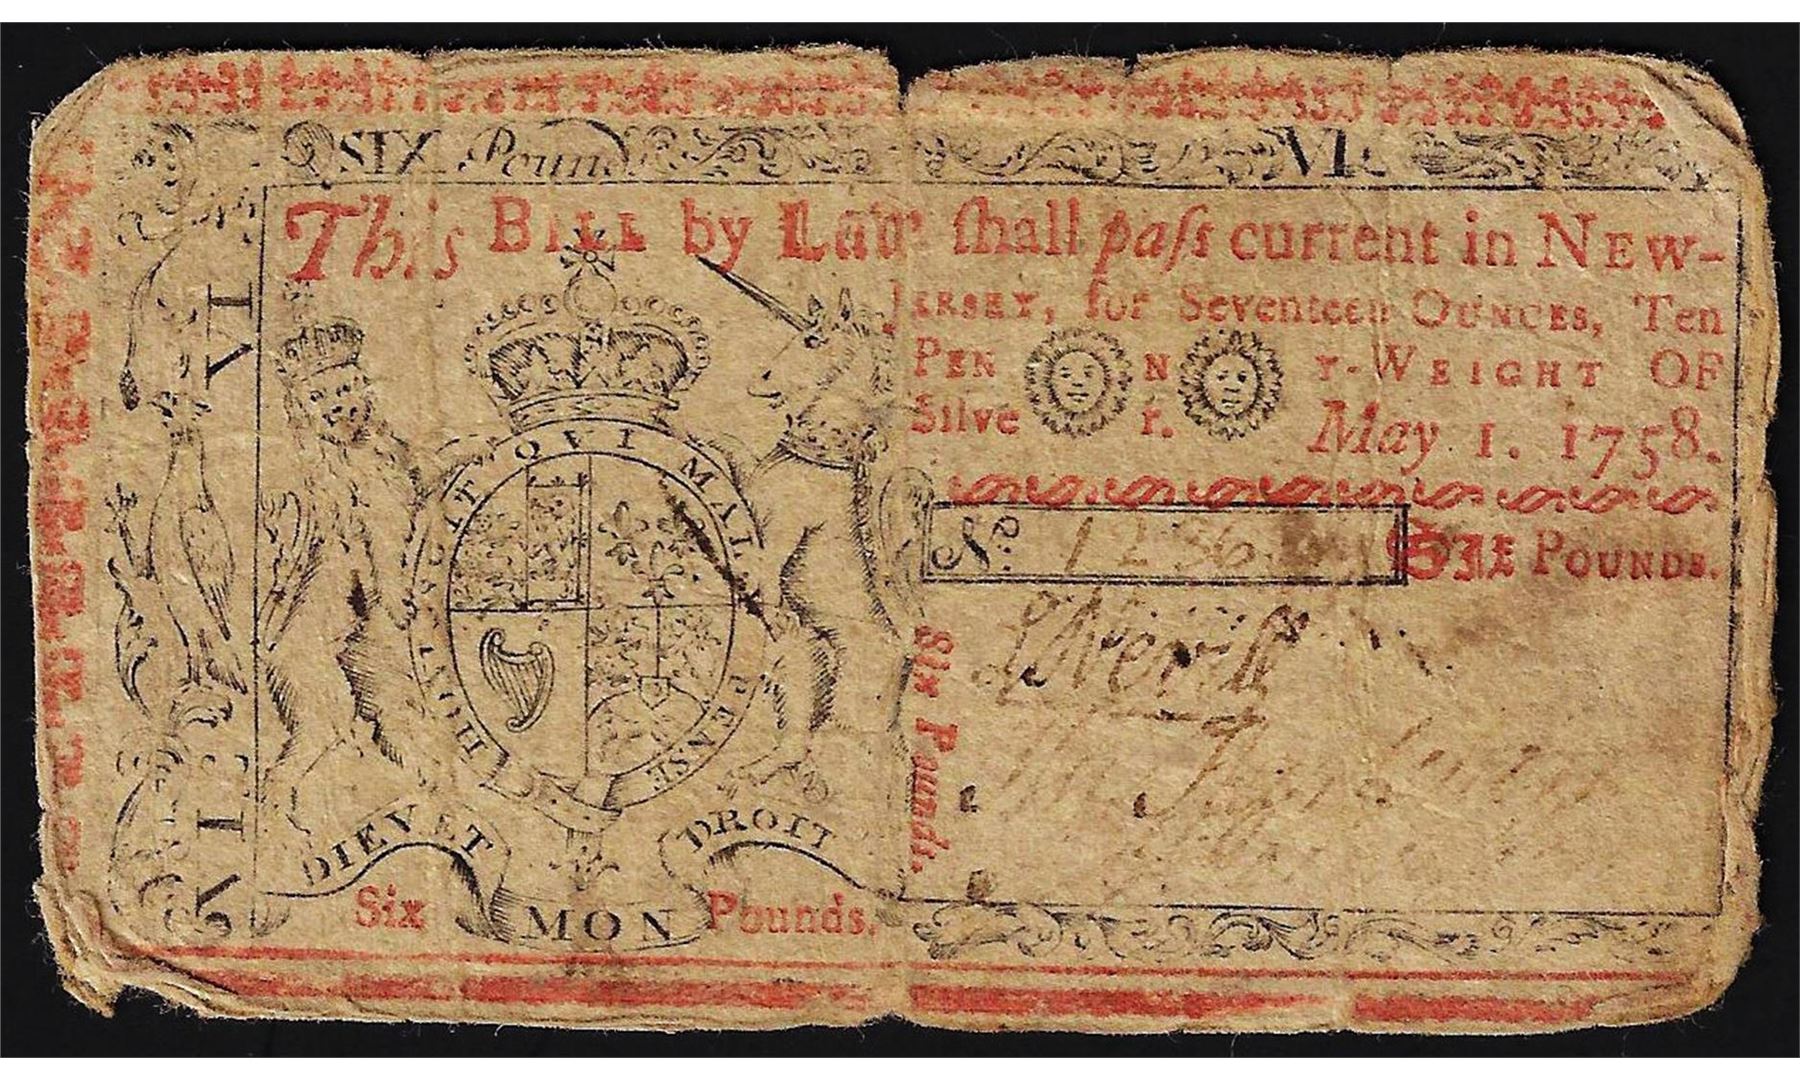 SIX Pounds VI
VI
This BILL by Law shall pass current in NEW-
JERSEY, for Seventeen OUNCES, Ten
PEN N Y-WEIGHT OF
Silve r. May 1. 1758.
No. 1236 SIX POUNDS.
HONI SOIT QVI MAL Y PENSE
Six Pounds.
S Nevill
DIEV ET DROIT
Six MON Pounds.
VI